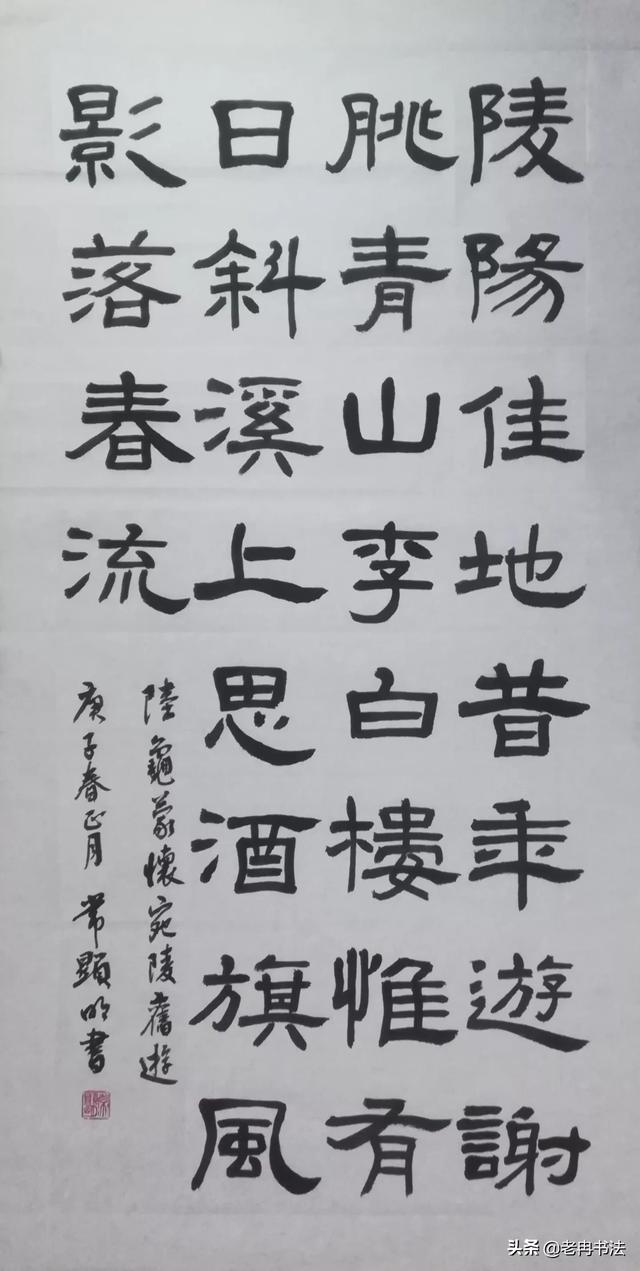 陵陽佳地昔年遊謝
朓青山李白樓惟有
日斜溪上思酒旗風
影落春流
陸龜蒙懷宛陵舊遊
庚子春正月 常顯明書
头条 @老冉书法